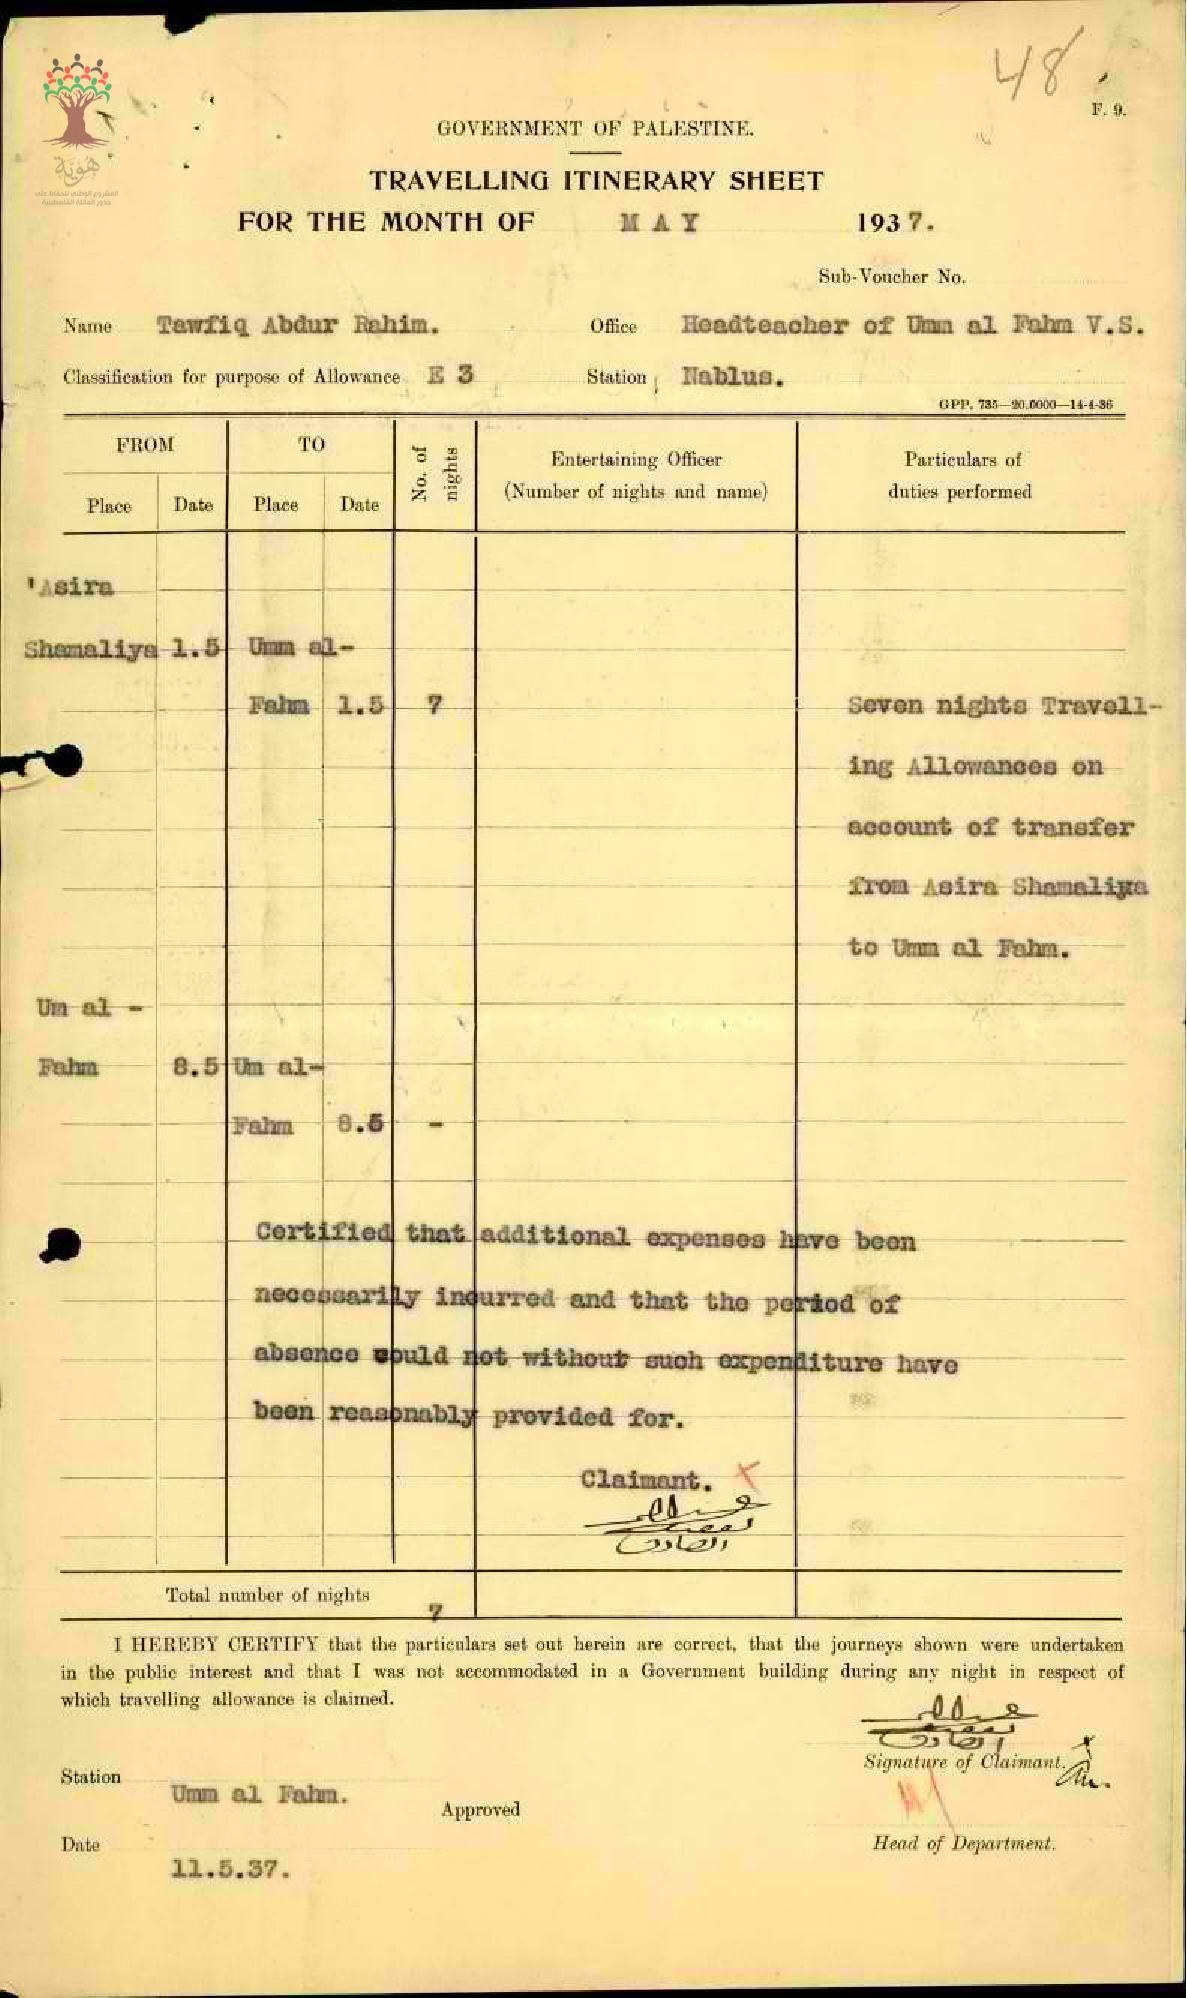 48
F. 9.
GOVERNMENT OF PALESTINE.
TRAVELLING ITINERARY SHEET
FOR THE MONTH OF MAY 1937.
Sub-Voucher No.
Name Tawfiq Abdur Rahim. Office Headteacher of Umm al Fahm V.S.
Classification for purpose of Allowance E 3 Station Nablus.
GPP. 735—20.0000—14-4-36
FROM TO No. of nights Entertaining Officer (Number of nights and name) Particulars of duties performed
Place Date Place Date
'Asira
Shamaliya 1.5 Umm al-
Fahm 1.5 7 Seven nights Travell-
ing Allowances on
account of transfer
from Asira Shamaliya
to Umm al Fahm.
Um al -
Fahm 8.5 Um al-
Fahm 8.5 -
Certified that additional expenses have been
necessarily incurred and that the period of
absence could not without such expenditure have
been reasonably provided for.
Claimant.
Total number of nights 7
I HEREBY CERTIFY that the particulars set out herein are correct, that the journeys shown were undertaken
in the public interest and that I was not accommodated in a Government building during any night in respect of
which travelling allowance is claimed.
Signature of Claimant.
Station Umm al Fahm.
Approved
Head of Department.
Date 11.5.37.
هُويّة
المشروع الوطني للحفاظ على
جذور العائلة الفلسطينية